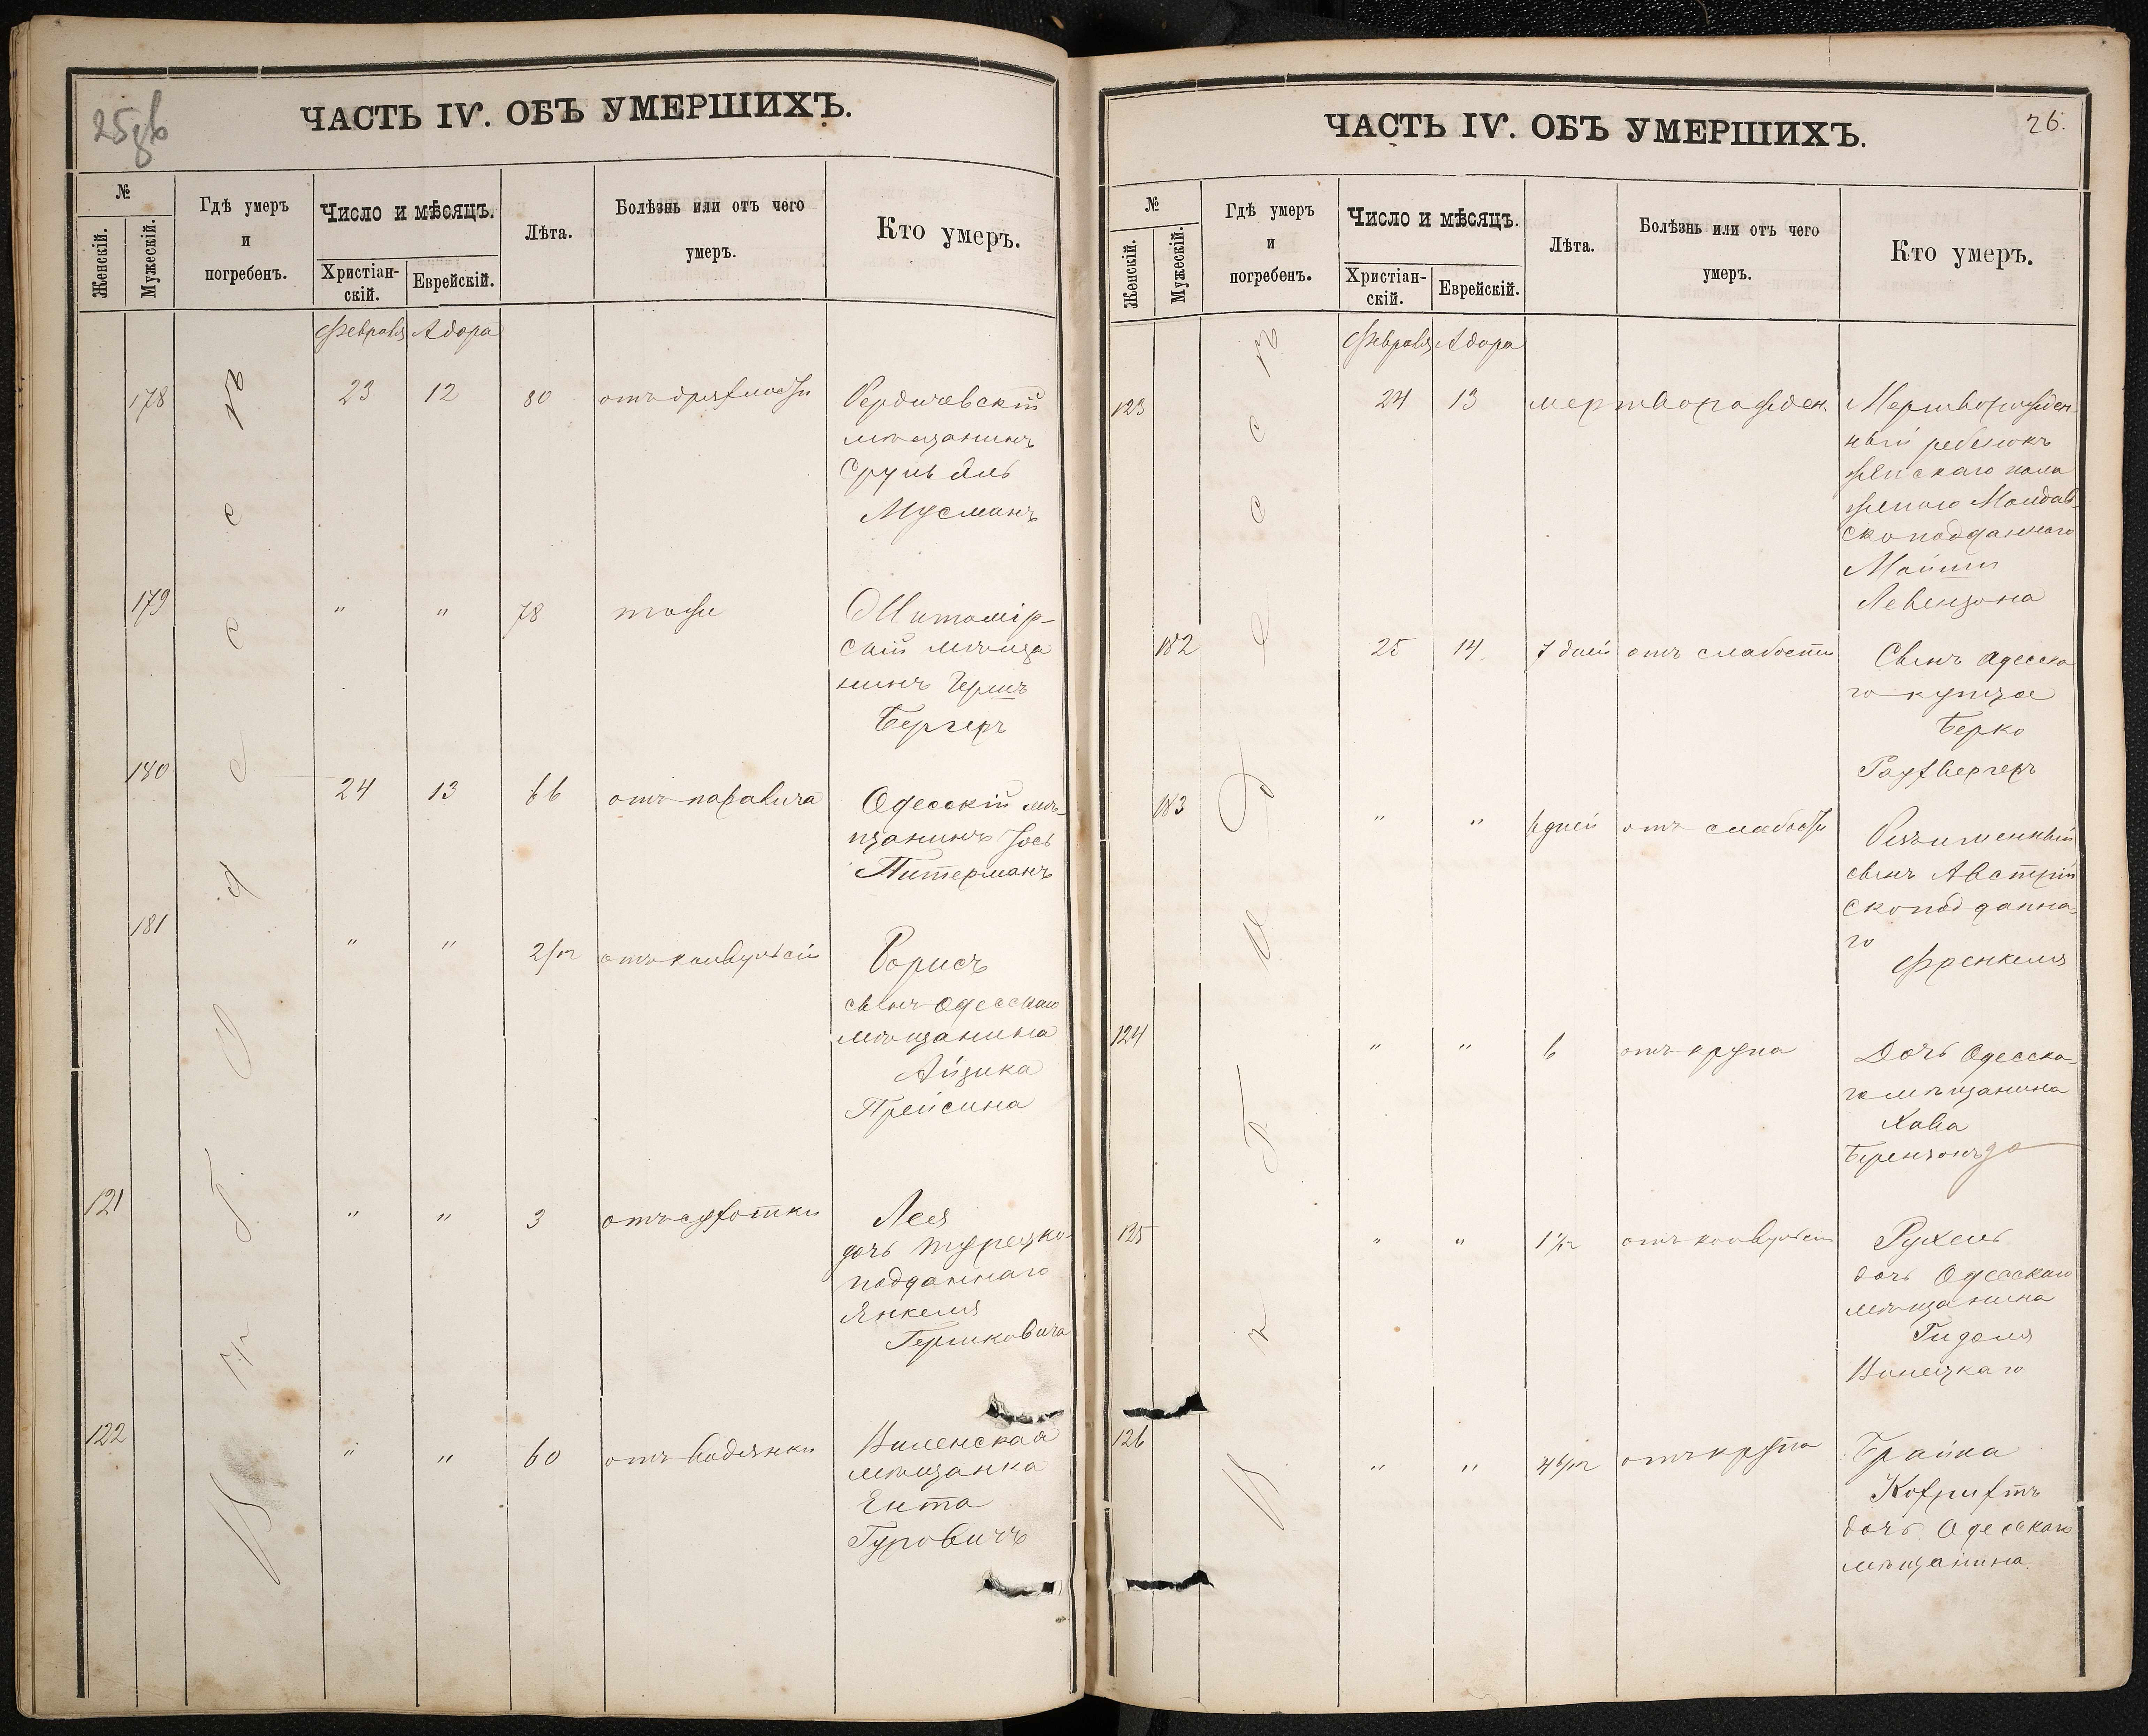 25об
ЧАСТЬ IV. ОБЪ УМЕРШИХЪ.
№
Женскій.
Мужескій.
Гдѣ умеръ
и
погребенъ.
Число и мѣсяцъ.
Христіан-
скій.
Еврейскій.
Лѣта.
Болѣзнь или отъ чего
умеръ.
Кто умеръ.
Февраля Адора
178 23 12 80 отъ дряхлости Бердичевскій
мѣщанинъ
Сруль
Мусманъ
179 " " 78 тоже Житомір-
скій мѣща
нинъ Гершъ
Бергеръ
180 24 13 66 отъ паралича Одесскій мѣ-
щанинъ Іось
Питерманъ
181 " " 2/м отъ конвульсій Борисъ
сынъ Одесскаго
мѣщанина
Айзика
Прейсина
121 " " 3 отъ сухотки Лея
дочь турецко-
подданнаго
Янкеля
Гершковича
122 " " 60 отъ водянки Виленская
мѣщанка
Ента
Гуровичъ
въ г. Одессѣ
26.
ЧАСТЬ IV. ОБЪ УМЕРШИХЪ.
№
Женскій.
Мужескій.
Гдѣ умеръ
и
погребенъ.
Число и мѣсяцъ.
Христіан-
скій.
Еврейскій.
Лѣта.
Болѣзнь или отъ чего
умеръ.
Кто умеръ.
Февраля Адора
123 24 13 мертворожден. Мертворожден-
ный ребенокъ
женскаго пола
Молдав-
скоподданнаго
Мойши
Левензона
182 25 14 7 дней отъ слабости Сынъ Одесска
го купца
Берко
Раухвергеръ
183 " " 6 дней отъ слабости Безъименный
сынъ Австрій
скоподданна-
го
Френкеля
124 " " 6 отъ крупа Дочь Одесска-
го мѣщанина
Хава
125 " " 1/м отъ конвульсій Рухель
дочь Одесскаго
мѣщанина
Гиделя
Вилецкаго
126 " " отъ крупа Брайна
дочь Одесскаго
мѣщанина.